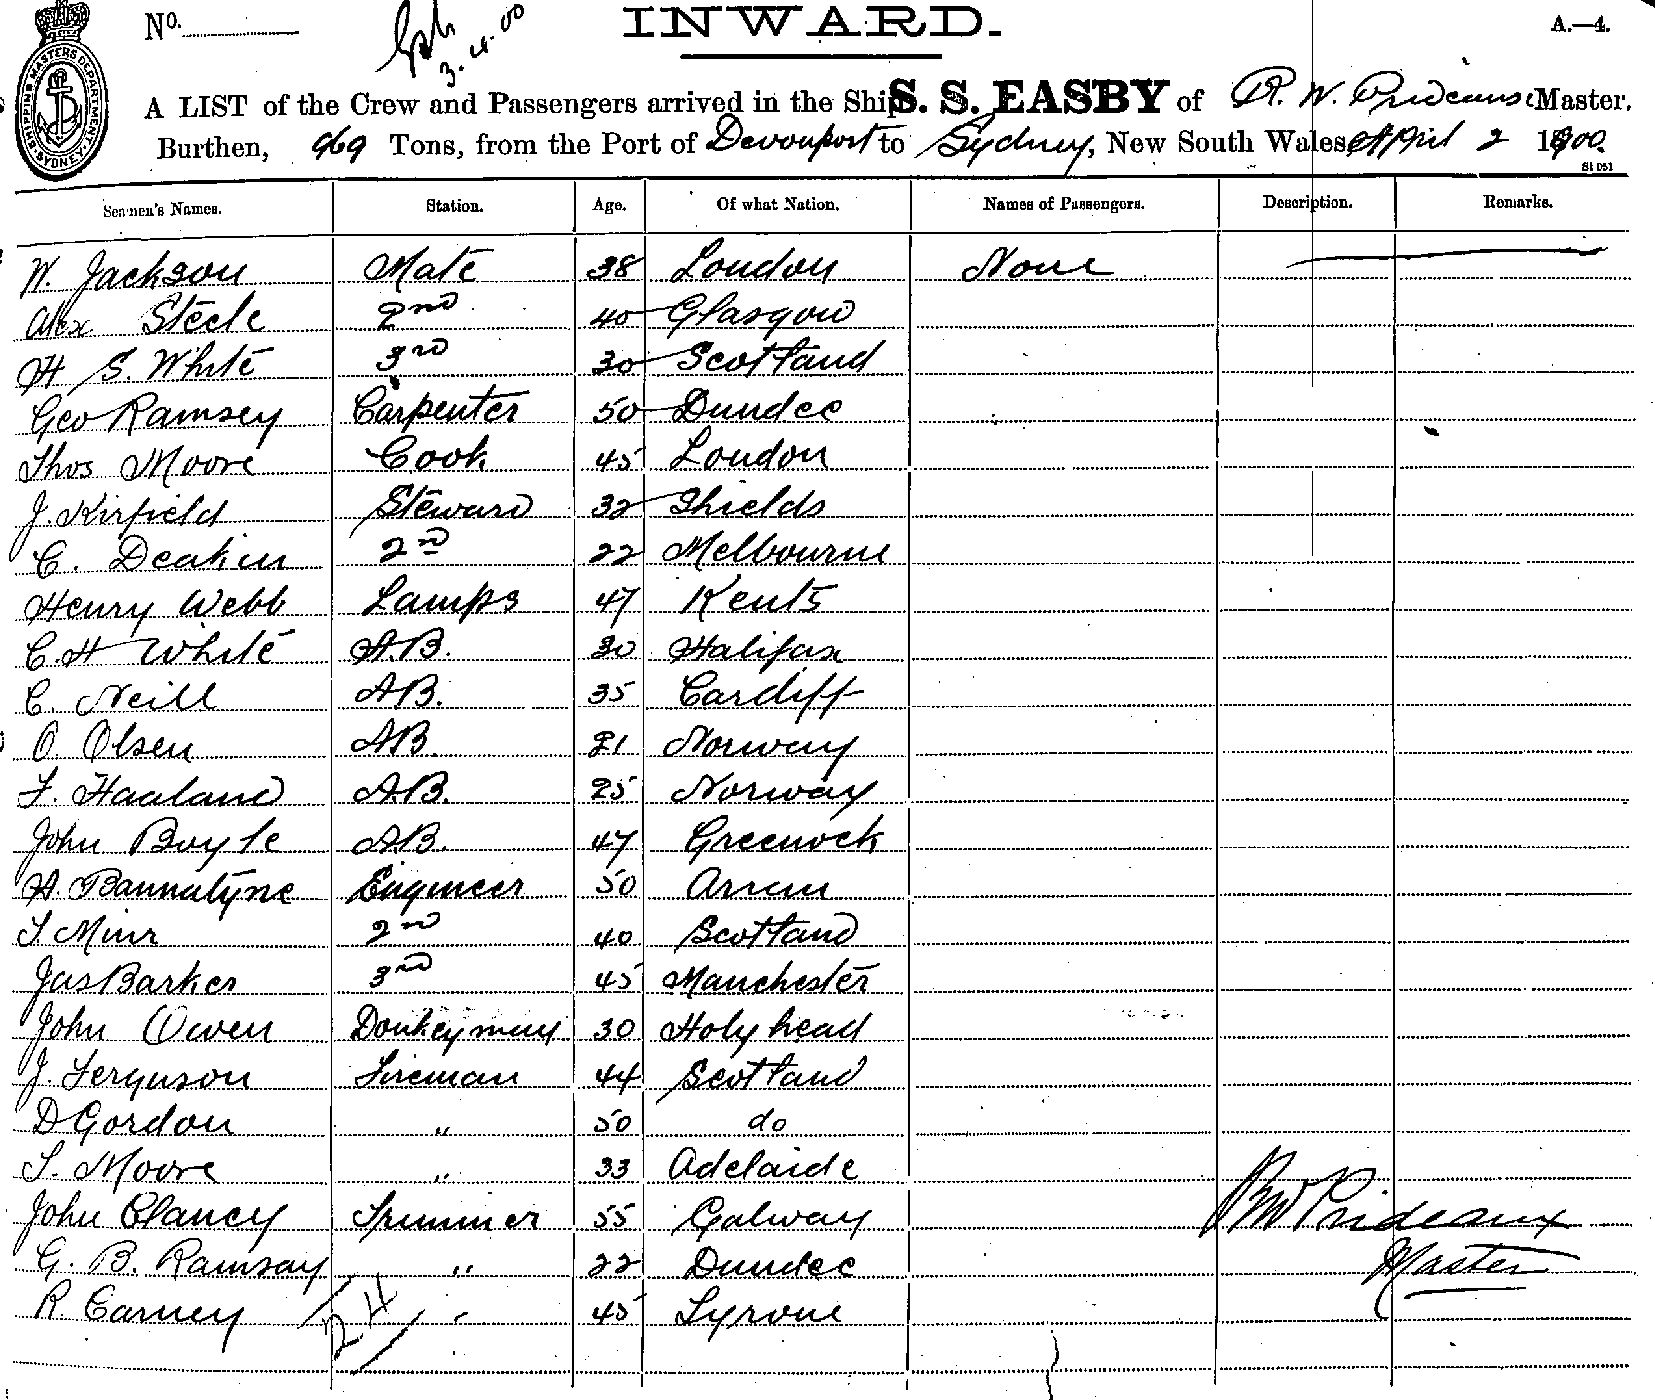 No.
3.4.00
INWARD.
A.—4.
SHIPPING MASTERS DEPARTMENT SYDNEY
A LIST of the Crew and Passengers arrived in the Ship S. S. EASBY of R. W. Prideaux Master.
Burthen, 969 Tons, from the Port of Devonport to Sydney, New South Wales April 2 1900.
St 051
Seamen's Names. Station. Age. Of what Nation. Names of Passengers. Description. Remarks.
W. Jackson Mate 38 London None
Alex Steele 2nd 40 Glasgow
H S. White 3rd 30 Scotland
Geo Ramsey Carpenter 50 Dundee
Thos Moore Cook 45 London
J. Kirfield Steward 32 Shields
C. Deakin 2nd 22 Melbourne
Henry Webb Lamps 47 Kents
C. H White A.B. 30 Halifax
C. Neill AB. 35 Cardiff
O. Olsen AB. 21 Norway
F. Haaland AB. 25 Norway
John Boyle AB. 47 Greenock
A. Bannatyne Engineer 50 Arran
T. Muir 2nd 40 Scotland
Jas Barker 3rd 45 Manchester
John Owen Donkeyman 30 Holyhead
J. Ferguson Fireman 44 Scotland
D Gordon " 50 do
T. Moore " 33 Adelaide
John Clancy Trimmer 55 Galway
RW Prideaux
G. B. Ramsay " 22 Dundee
Master
R. Carney " 45 Tyrone
24